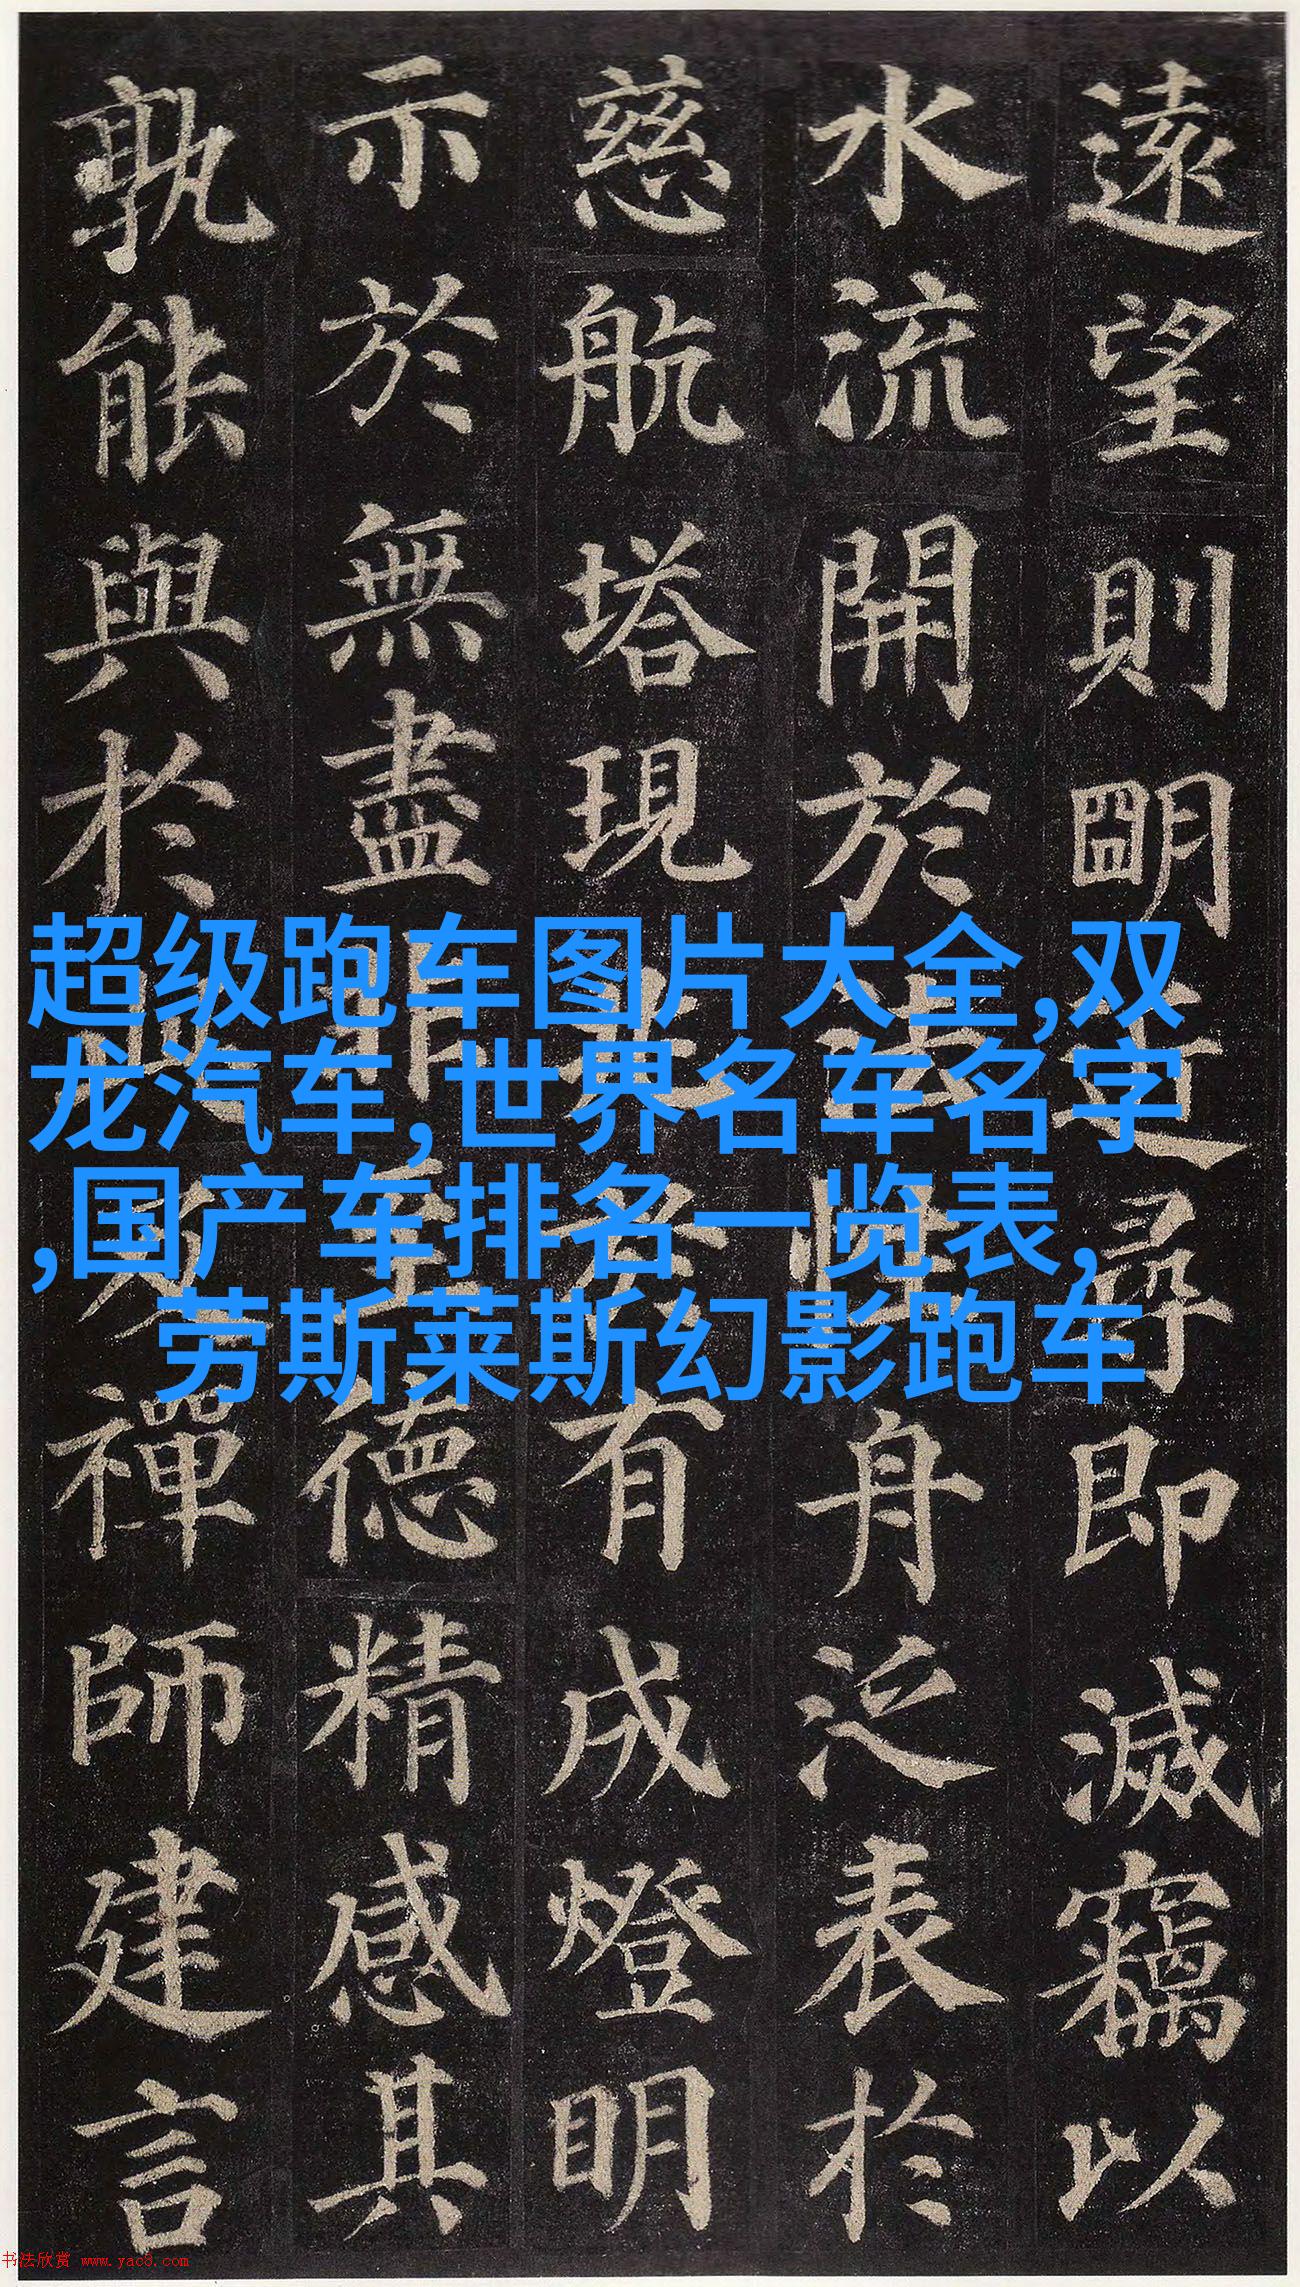 遠望則朙近尋即滅竊以
水流開於法性舟泛表於
慈航塔現兆於有成燈明
示於無盡非至德精感其
孰能與於此及禪師建言
超级跑车图片大全,双
龙汽车,世界名车名字
,国产车排名一览表,
劳斯莱斯幻影跑车
书法欣赏 www.yac8.com